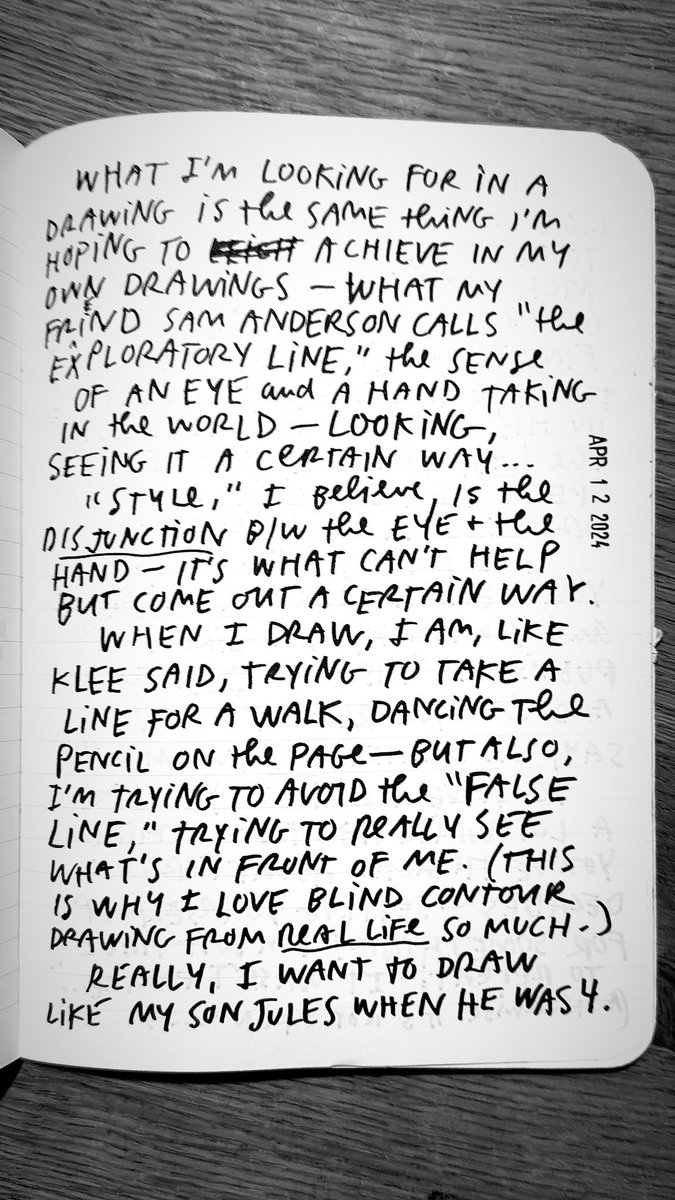 WHAT I'M LOOKING FOR IN A
DRAWING IS the SAME thING I'M
HOPING TO ACHIEVE IN MY
OWN DRAWINGS — WHAT MY
FRIEND SAM ANDERSON CALLS "the
EXPLORATORY LINE," the SENSE
OF AN EYE and A HAND TAKING
IN the WORLD — LOOKING,
SEEING IT A CERTAIN WAY...
"STYLE," I BELIEVE, IS the
DISJUNCTION B/W the EYE + the
HAND — IT'S WHAT CAN'T HELP
BUT COME OUT A CERTAIN WAY.
WHEN I DRAW, I AM, LIKE
KLEE SAID, TRYING TO TAKE A
LINE FOR A WALK, DANCING THE
PENCIL ON the PAGE — BUT ALSO,
I'M TRYING TO AVOID the "FALSE
LINE," TRYING TO REALLY SEE
WHAT'S IN FRONT OF ME. (THIS
IS WHY I LOVE BLIND CONTOUR
DRAWING FROM REAL LIFE SO MUCH.)
REALLY, I WANT to DRAW
LIKE MY SON JULES WHEN HE WAS 4.
APR 12 2024